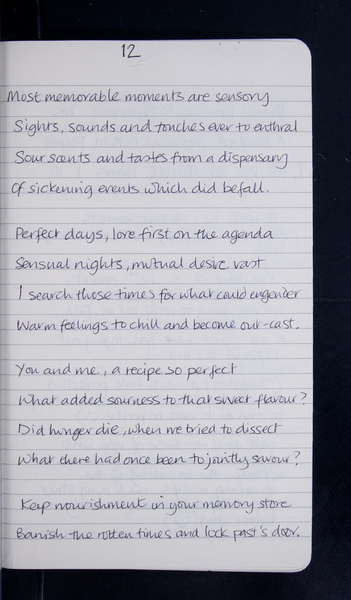 12
Most memorable moments are sensory
Sights, sounds and touches ever to enthral
Sour scents and tastes from a dispensary
Of sickening events which did befall.
Perfect days, love first on the agenda
Sensual nights, mutual desire vast
I search those times for what could engender
Warm feelings to chill and become out-cast.
You and me, a recipe so perfect
What added sourness to that sweet flavour?
Did hunger die, when we tried to dissect
What there had once been to jointly savour?
Keep nourishment in your memory store
Banish the rotten times and lock past's door.